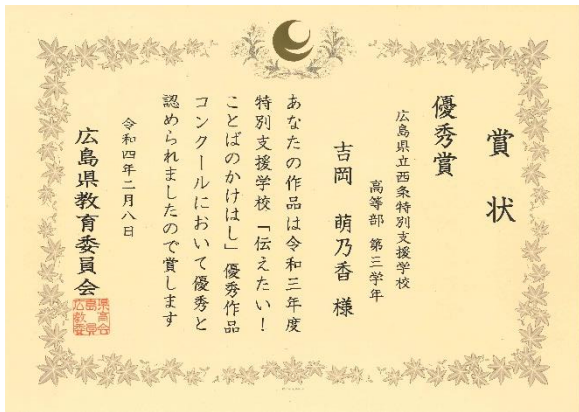 賞状
優秀賞
広島県立西条特別支援学校
高等部 第三学年
吉岡 萌乃香 様
あなたの作品は令和三年度
特別支援学校「伝えたい!
ことばのかけはし」優秀作品
コンクールにおいて優秀と
認められましたので賞します
令和四年二月八日
広島県教育委員会